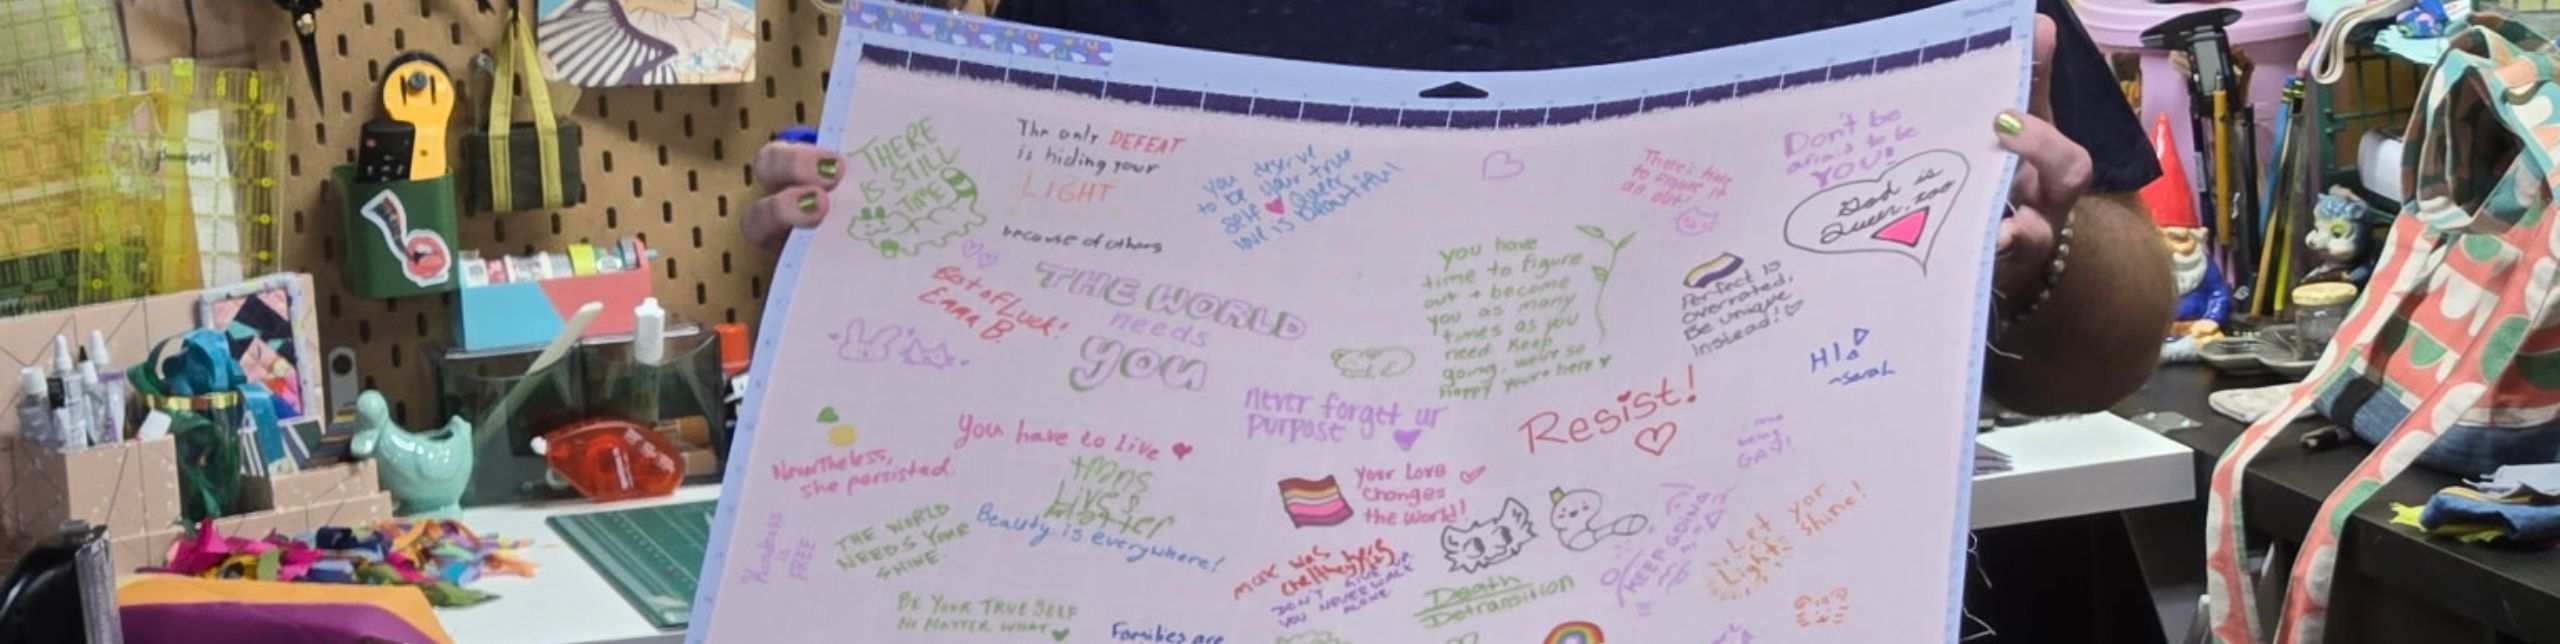 THERE
IS STILL
TIME
The only DEFEAT
is hiding your
LIGHT
because of others
you deserve
to be your true
self Queer
love is Beautiful
There's time
to figure it
all out!
Don't be
afraid to be
YOU!
God is
Queer, too
Best of Luck!
Emma B.
THE WORLD
needs
you
you have
time to figure
out + become
you as many
times as you
need. Keep
going. we're so
happy you're here
Perfect is
overrated.
Be unique
instead!
HI!
~Sarah
never forget ur
purpose
Resist!
You have to live
Nevertheless,
she persisted.
trans
Lives
Matter
Your Love
Changes
the World!
GAY!
Kindness
is
FREE
THE WORLD
NEEDS YOUR
SHINE.
Beauty is everywhere!
max was
here
(he/they/it)
DON'T GIVE UP
YOU NEVER WALK
ALONE
KEEP GOING
Let your
Light shine!
Death
Detransition
BE YOUR TRUE SELF
NO MATTER WHAT
Families are
Omnigrid